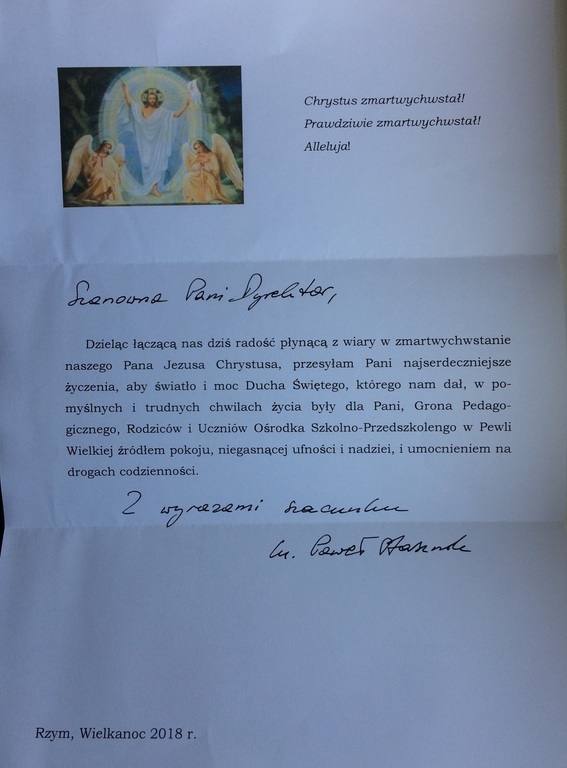 Chrystus zmartwychwstał!
Prawdziwie zmartwychwstał!
Alleluja!
Szanowna Pani Dyrektor,
Dzieląc łączącą nas dziś radość płynącą z wiary w zmartwychwstanie
naszego Pana Jezusa Chrystusa, przesyłam Pani najserdeczniejsze
życzenia, aby światło i moc Ducha Świętego, którego nam dał, w po-
myślnych i trudnych chwilach życia były dla Pani, Grona Pedago-
gicznego, Rodziców i Uczniów Ośrodka Szkolno-Przedszkolengo w Pewli
Wielkiej źródłem pokoju, niegasnącej ufności i nadziei, i umocnieniem na
drogach codzienności.
Z wyrazami szacunku
Paweł
Rzym, Wielkanoc 2018 r.